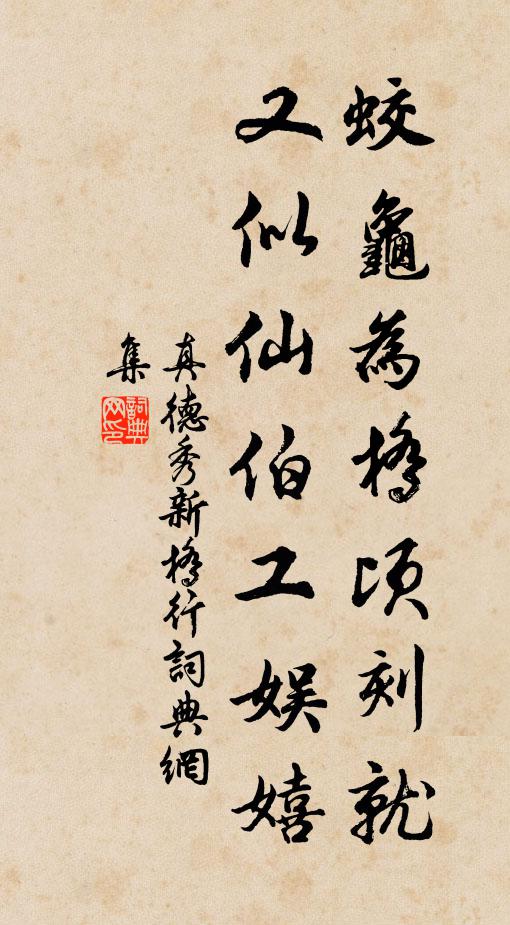 蛟龜為橋頃刻就
又似仙伯工娛嬉
真德秀新橋行詞典網
集
詞典網印